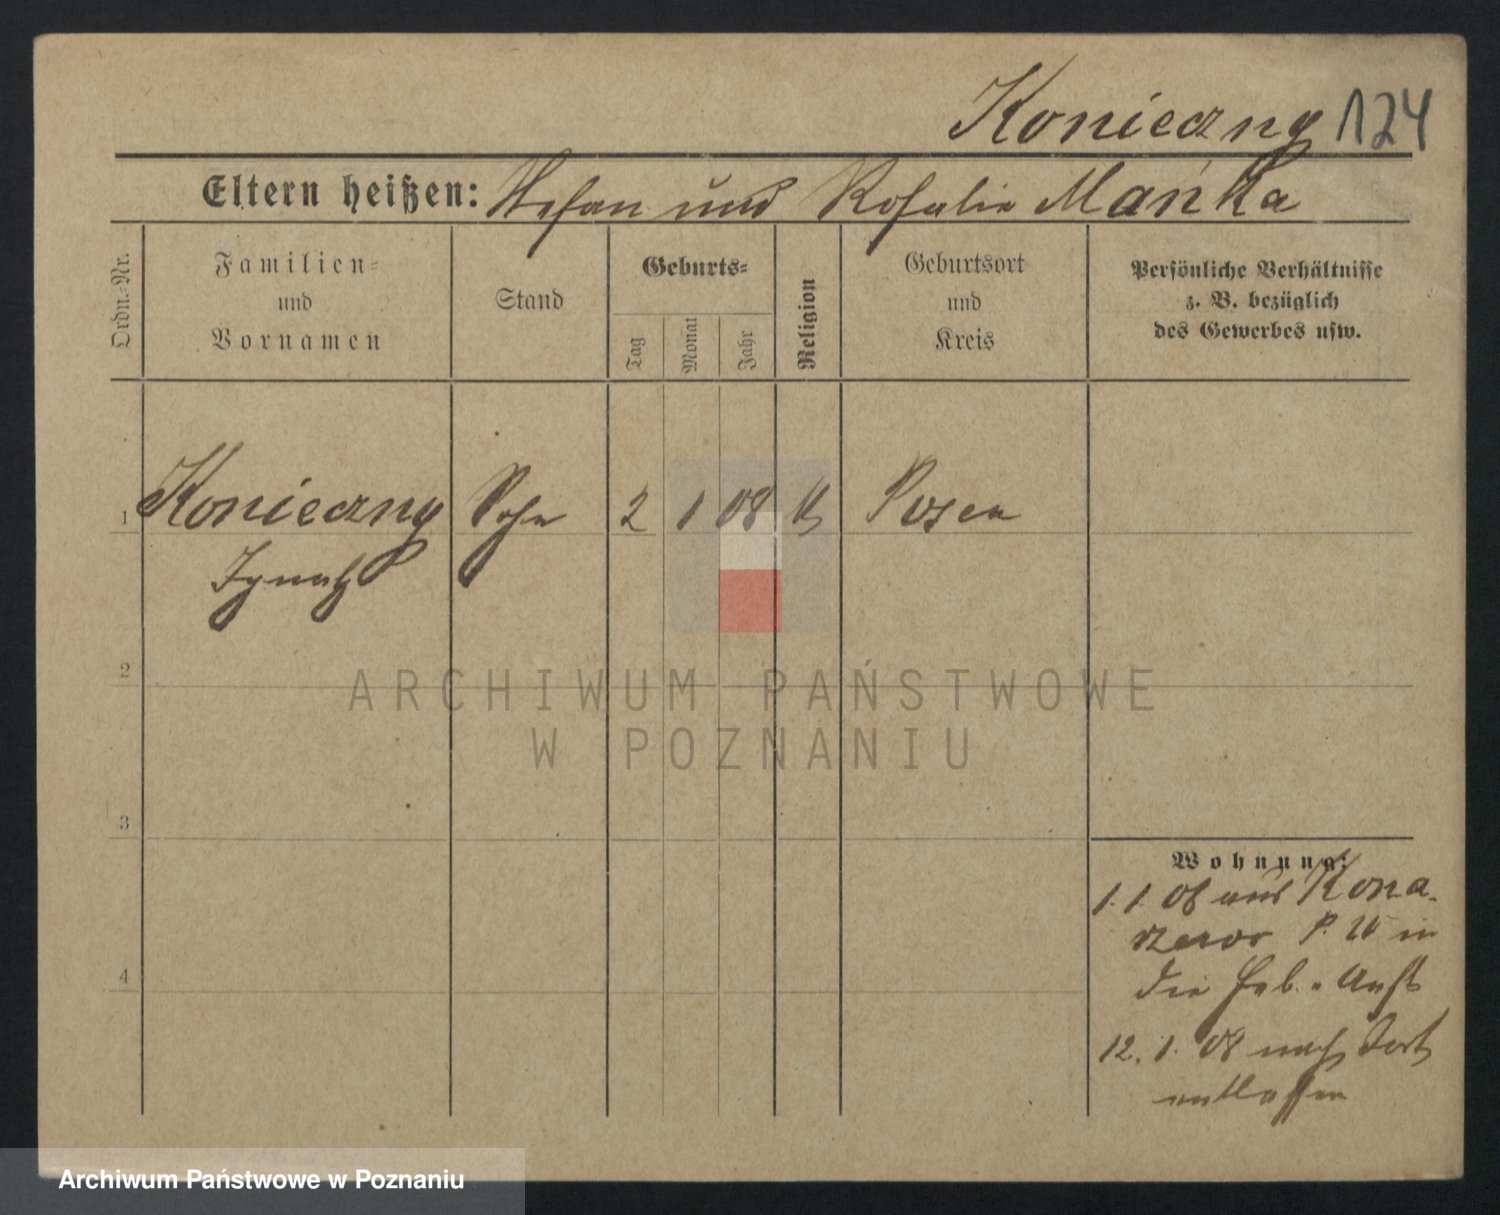 Konieczny 124
Eltern heißen: Stefan und Rosalie Mańka
Ordn.=Nr.
Familien=
und
Vornamen
Stand
Geburts=
Tag
Monat
Jahr
Religion
Geburtsort
und
Kreis
Persönliche Verhältnisse
z. B. bezüglich
des Gewerbes usw.
1 Konieczny Sohn 2 1 08 k Posen
Ignatz
2
3
4
Wohnung:
1. 1. 08 aus Kona-
rzewo P. W in
die Heb.- Anst
12. 1. 08 nach dort
entlassen
ARCHIWUM PAŃSTWOWE
W POZNANIU
Archiwum Państwowe w Poznaniu